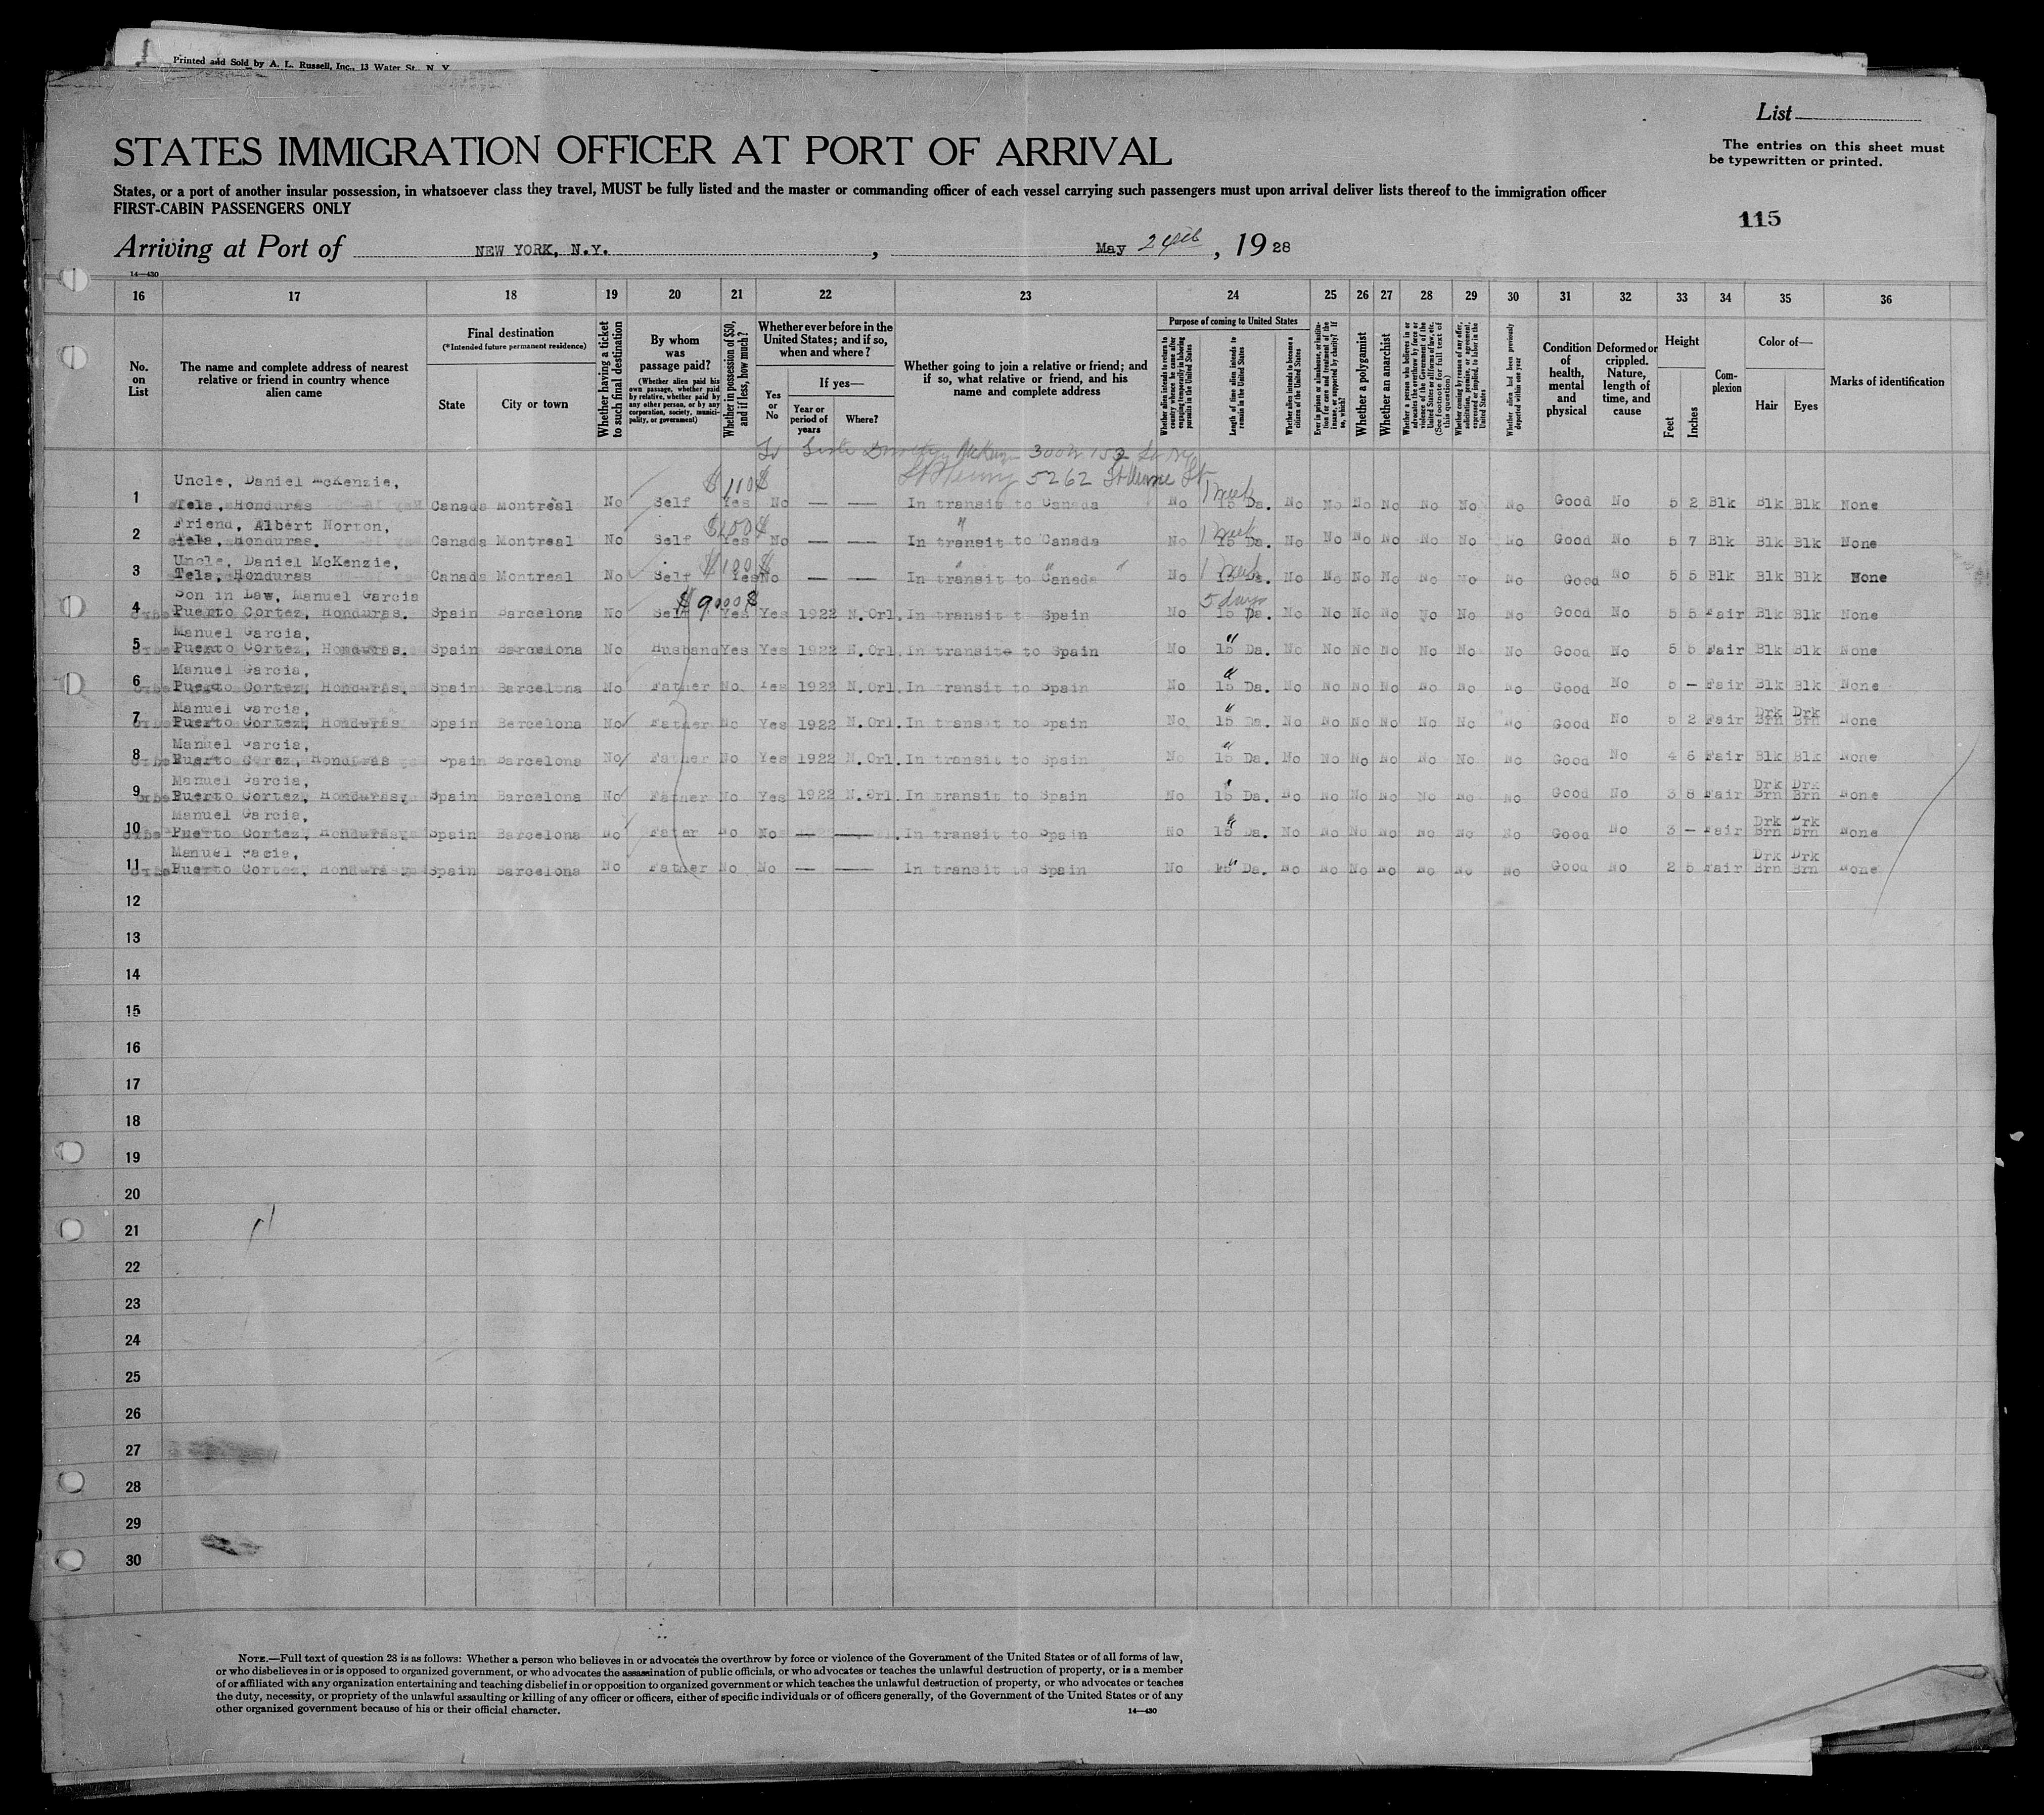 Printed and Sold by A. L. Russell, Inc., 13 Water St., N. Y.
List
STATES IMMIGRATION OFFICER AT PORT OF ARRIVAL
The entries on this sheet must
be typewritten or printed.
States, or a port of another insular possession, in whatsoever class they travel, MUST be fully listed and the master or commanding officer of each vessel carrying such passengers must upon arrival deliver lists thereof to the immigration officer
FIRST-CABIN PASSENGERS ONLY
115
Arriving at Port of NEW YORK, N.Y. , May , 19 28
14—430
16 17 18 19 20 21 22 23 24 25 26 27 28 29 30 31 32 33 34 35 36
No. on List
The name and complete address of nearest relative or friend in country whence alien came
Final destination (*Intended future permanent residence)
State
City or town
Whether having a ticket to such final destination
By whom was passage paid?
(Whether alien paid his own passage, whether paid by relative, whether paid by any other person, or by any corporation, society, municipality, or government)
Whether in possession of $50, and if less, how much?
Whether ever before in the United States; and if so, when and where?
Yes or No
If yes—
Year or period of years
Where?
Whether going to join a relative or friend; and if so, what relative or friend, and his name and complete address
Purpose of coming to United States
Whether alien intends to return to country whence he came after engaging temporarily in laboring pursuits in the United States
Length of time alien intends to remain in the United States
Whether alien intends to become a citizen of the United States
Ever in prison or almshouse, or institution for care and treatment of the insane, or supported by charity? If so, which?
Whether a polygamist
Whether an anarchist
Whether a person who believes in or advocates the overthrow by force or violence of the Government of the United States or all forms of law, etc. (See footnote for full text of this question)
Whether coming by reason of any offer, solicitation, promise, or agreement, expressed or implied, to labor in the United States
Whether alien had been previously deported within one year
Condition of health, mental and physical
Deformed or crippled. Nature, length of time, and cause
Height
Feet
Inches
Complexion
Color of—
Hair
Eyes
Marks of identification
5262
Uncle, Daniel McKenzie,
1 Tela, Honduras Canada Montreal No Self $110 Yes No — — In transit to Canada No 1 week 15 Da. No No No No No No No Good No 5 2 Blk Blk Blk None
Friend, Albert Norton,
2 Tela, Honduras. Canada Montreal No Self $100 Yes No — — In transit to Canada No 1 week 15 Da. No No No No No No No Good No 5 7 Blk Blk Blk None
Uncle, Daniel McKenzie,
3 Tela, Honduras Canada Montreal No Self $100 Yes No — — In transit to Canada No 1 week 15 Da. No No No No No No No Good No 5 5 Blk Blk Blk None
Son in Law, Manuel Garcia
4 Puerto Cortez, Honduras. Spain Barcelona No Self $9000 Yes Yes 1922 N.Orl. In transit t Spain No 5 days 15 Da. No No No No No No No Good No 5 5 Fair Blk Blk None
Manuel Garcia,
5 Puerto Cortez, Honduras. Spain Barcelona No Husband Yes Yes 1922 N.Orl. In transite to Spain No " 15 Da. No No No No No No No Good No 5 5 Fair Blk Blk None
Manuel Garcia,
6 Puerto Cortez, Honduras. Spain Barcelona No Father No Yes 1922 N.Orl. In transit to Spain No " 15 Da. No No No No No No No Good No 5 — Fair Blk Blk None
Manuel Garcia,
7 Puerto Cortez, Honduras Spain Barcelona No Father No Yes 1922 N.Orl. In transit to Spain No " 15 Da. No No No No No No No Good No 5 2 Fair Drk Brn Drk Brn None
Manuel Garcia,
8 Puerto Corez, Honduras Spain Barcelona No Father No Yes 1922 N.Orl. In transit to Spain No " 15 Da. No No No No No No No Good No 4 6 Fair Blk Blk None
Manuel Garcia,
9 Puerto Cortez, Honduras, Spain Barcelona No Father No Yes 1922 N.Orl. In transit to Spain No " 15 Da. No No No No No No No Good No 3 8 Fair Drk Brn Drk Brn None
Manuel Garcia,
10 Puerto Cortez, Honduras Spain Barcelona No Fater No No — — In transit to Spain No " 15 Da. No No No No No No No Good No 3 — Fair Drk Brn Drk Brn None
Manuel Gacia,
11 Puerto Cortez, Honduras Spain Barcelona No Father No No — — In transit to Spain No " 15 Da. No No No No No No No Good No 2 5 Fair Drk Brn Drk Brn None
12
13
14
15
16
17
18
19
20
21
22
23
24
25
26
27
28
29
30
NOTE.—Full text of question 28 is as follows: Whether a person who believes in or advocates the overthrow by force or violence of the Government of the United States or of all forms of law,
or who disbelieves in or is opposed to organized government, or who advocates the assassination of public officials, or who advocates or teaches the unlawful destruction of property, or is a member
of or affiliated with any organization entertaining and teaching disbelief in or opposition to organized government or which teaches the unlawful destruction of property, or who advocates or teaches
the duty, necessity, or propriety of the unlawful assaulting or killing of any officer or officers, either of specific individuals or of officers generally, of the Government of the United States or of any
other organized government because of his or their official character.
14—430